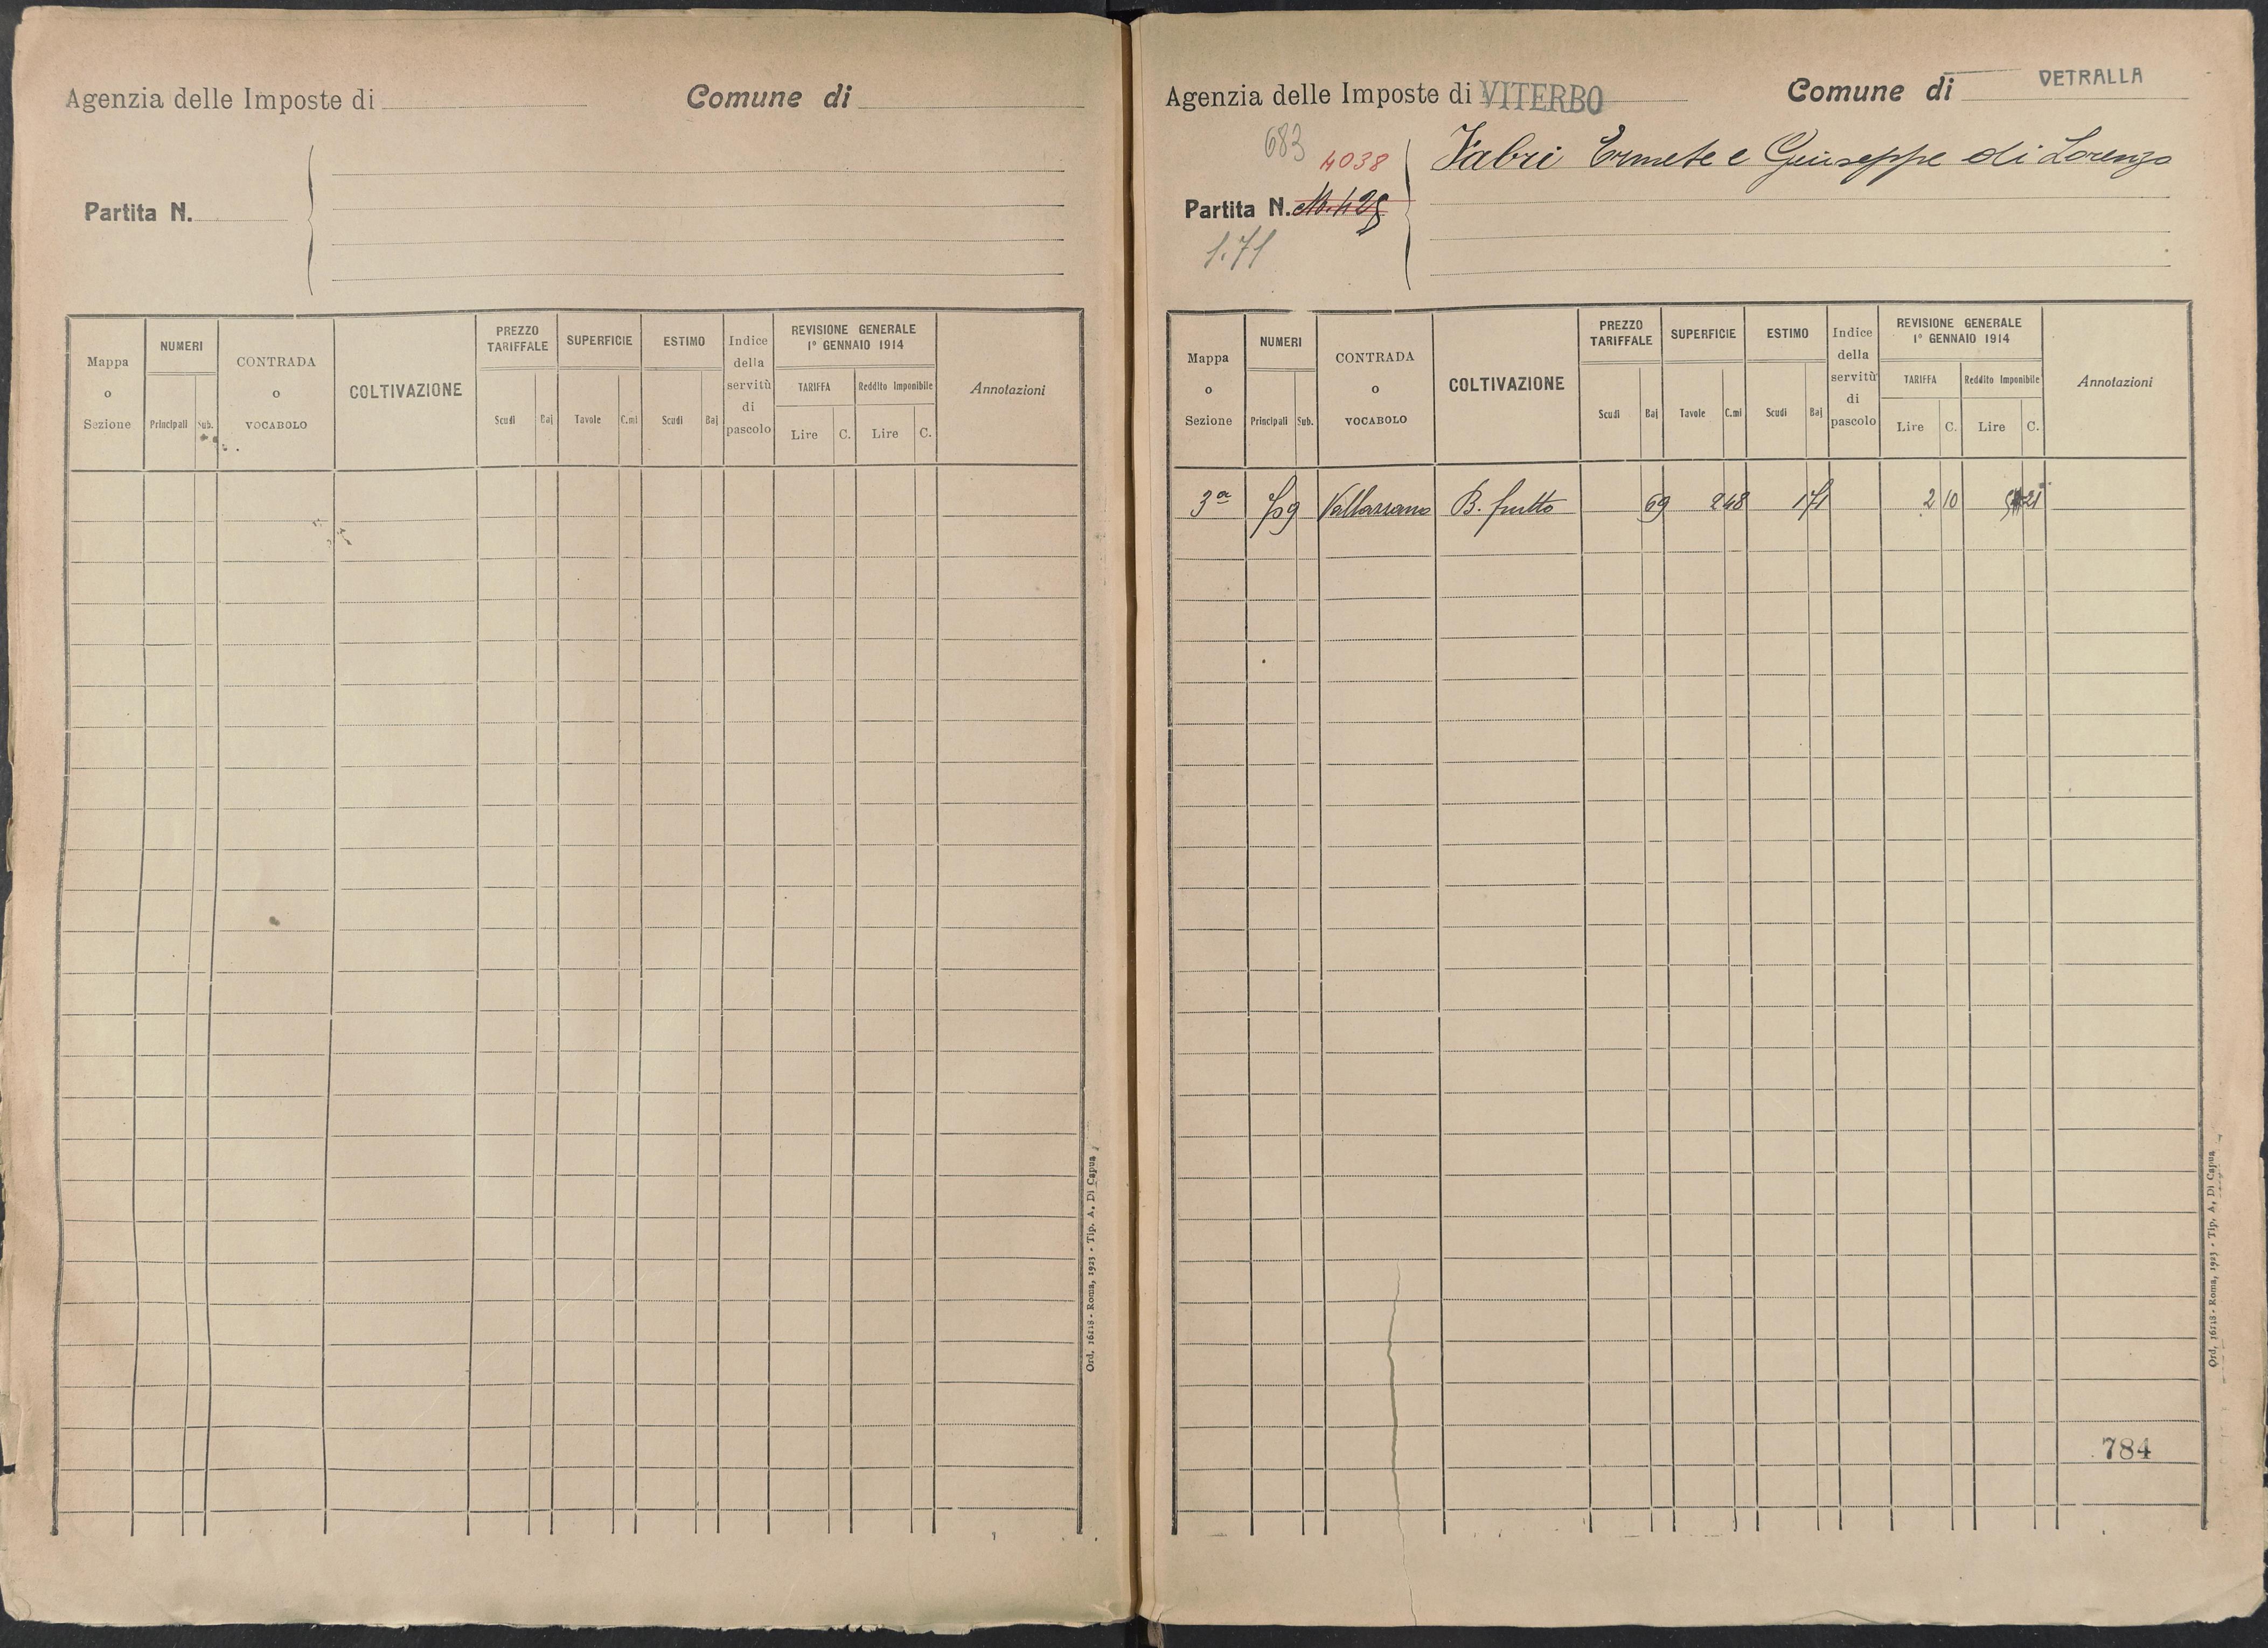 Agenzia delle Imposte di
Comune di
Partita N.
Mappa o Sezione
NUMERI
Principali
Sub.
CONTRADA o VOCABOLO
COLTIVAZIONE
PREZZO TARIFFALE
Scudi
Baj
SUPERFICIE
Tavole
C.mi
ESTIMO
Scudi
Baj
Indice della servitù di pascolo
REVISIONE GENERALE
1° GENNAIO 1914
TARIFFA
Reddito Imponibile
Lire
C.
Lire
C.
Annotazioni
Ord. 16118 - Roma, 1923 - Tip. A. Di Capua
Agenzia delle Imposte di VITERBO
Comune di VETRALLA
683
4038
Fabri Ermete e Giuseppe di Lorenzo
Partita N.
1.71
Mappa o Sezione
NUMERI
Principali
Sub.
CONTRADA o VOCABOLO
COLTIVAZIONE
PREZZO TARIFFALE
Scudi
Baj
SUPERFICIE
Tavole
C.mi
ESTIMO
Scudi
Baj
Indice della servitù di pascolo
REVISIONE GENERALE
1° GENNAIO 1914
TARIFFA
Reddito Imponibile
Lire
C.
Lire
C.
Annotazioni
3ª B. frutto 69 2 48 1 71 2 10 5 21
784
Ord. 16118 - Roma, 1923 - Tip. A. Di Capua